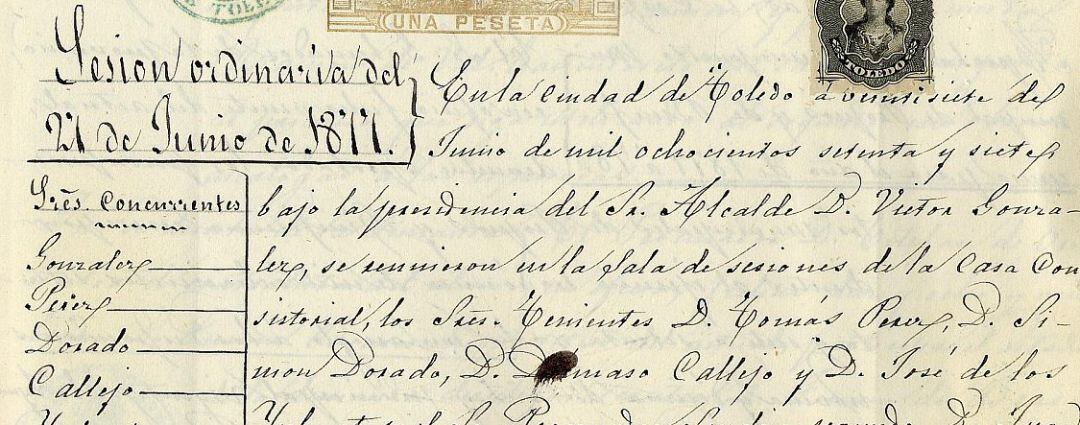 TOLEDO
UNA PESETA
TOLEDO
Sesion ordinaria del
27 de Junio de 1877.
En la ciudad de Toledo a veintisiete de
Junio de mil ochocientos setenta y siete,
Sres. Concurrentes
Gonzalez
Perez
Dorado
Callejo
bajo la presidencia del Sr. Alcalde D. Victor Gonza-
lez, se reunieron en la sala de sesiones de la Casa Con
sistorial, los Sres. Tenientes D. Tomás Perez, D. Si-
mon Dorado, D. Damaso Callejo y D. José de los